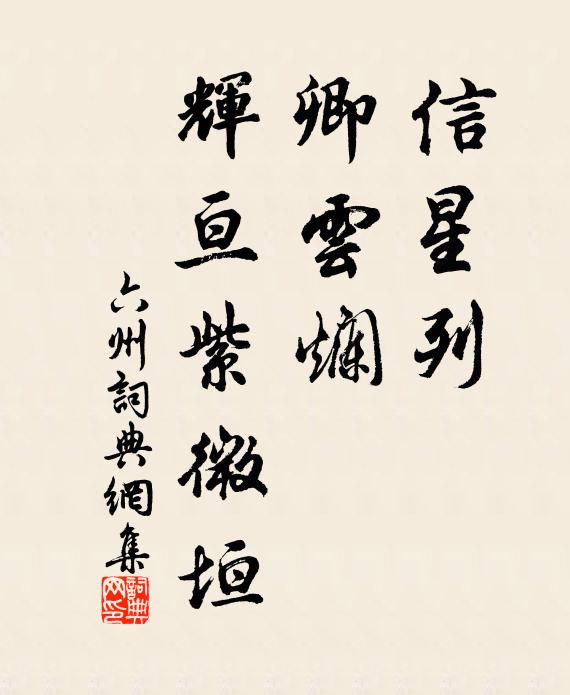 信星列
卿雲爛
輝亘紫微垣
六州詞典網集
詞典网印